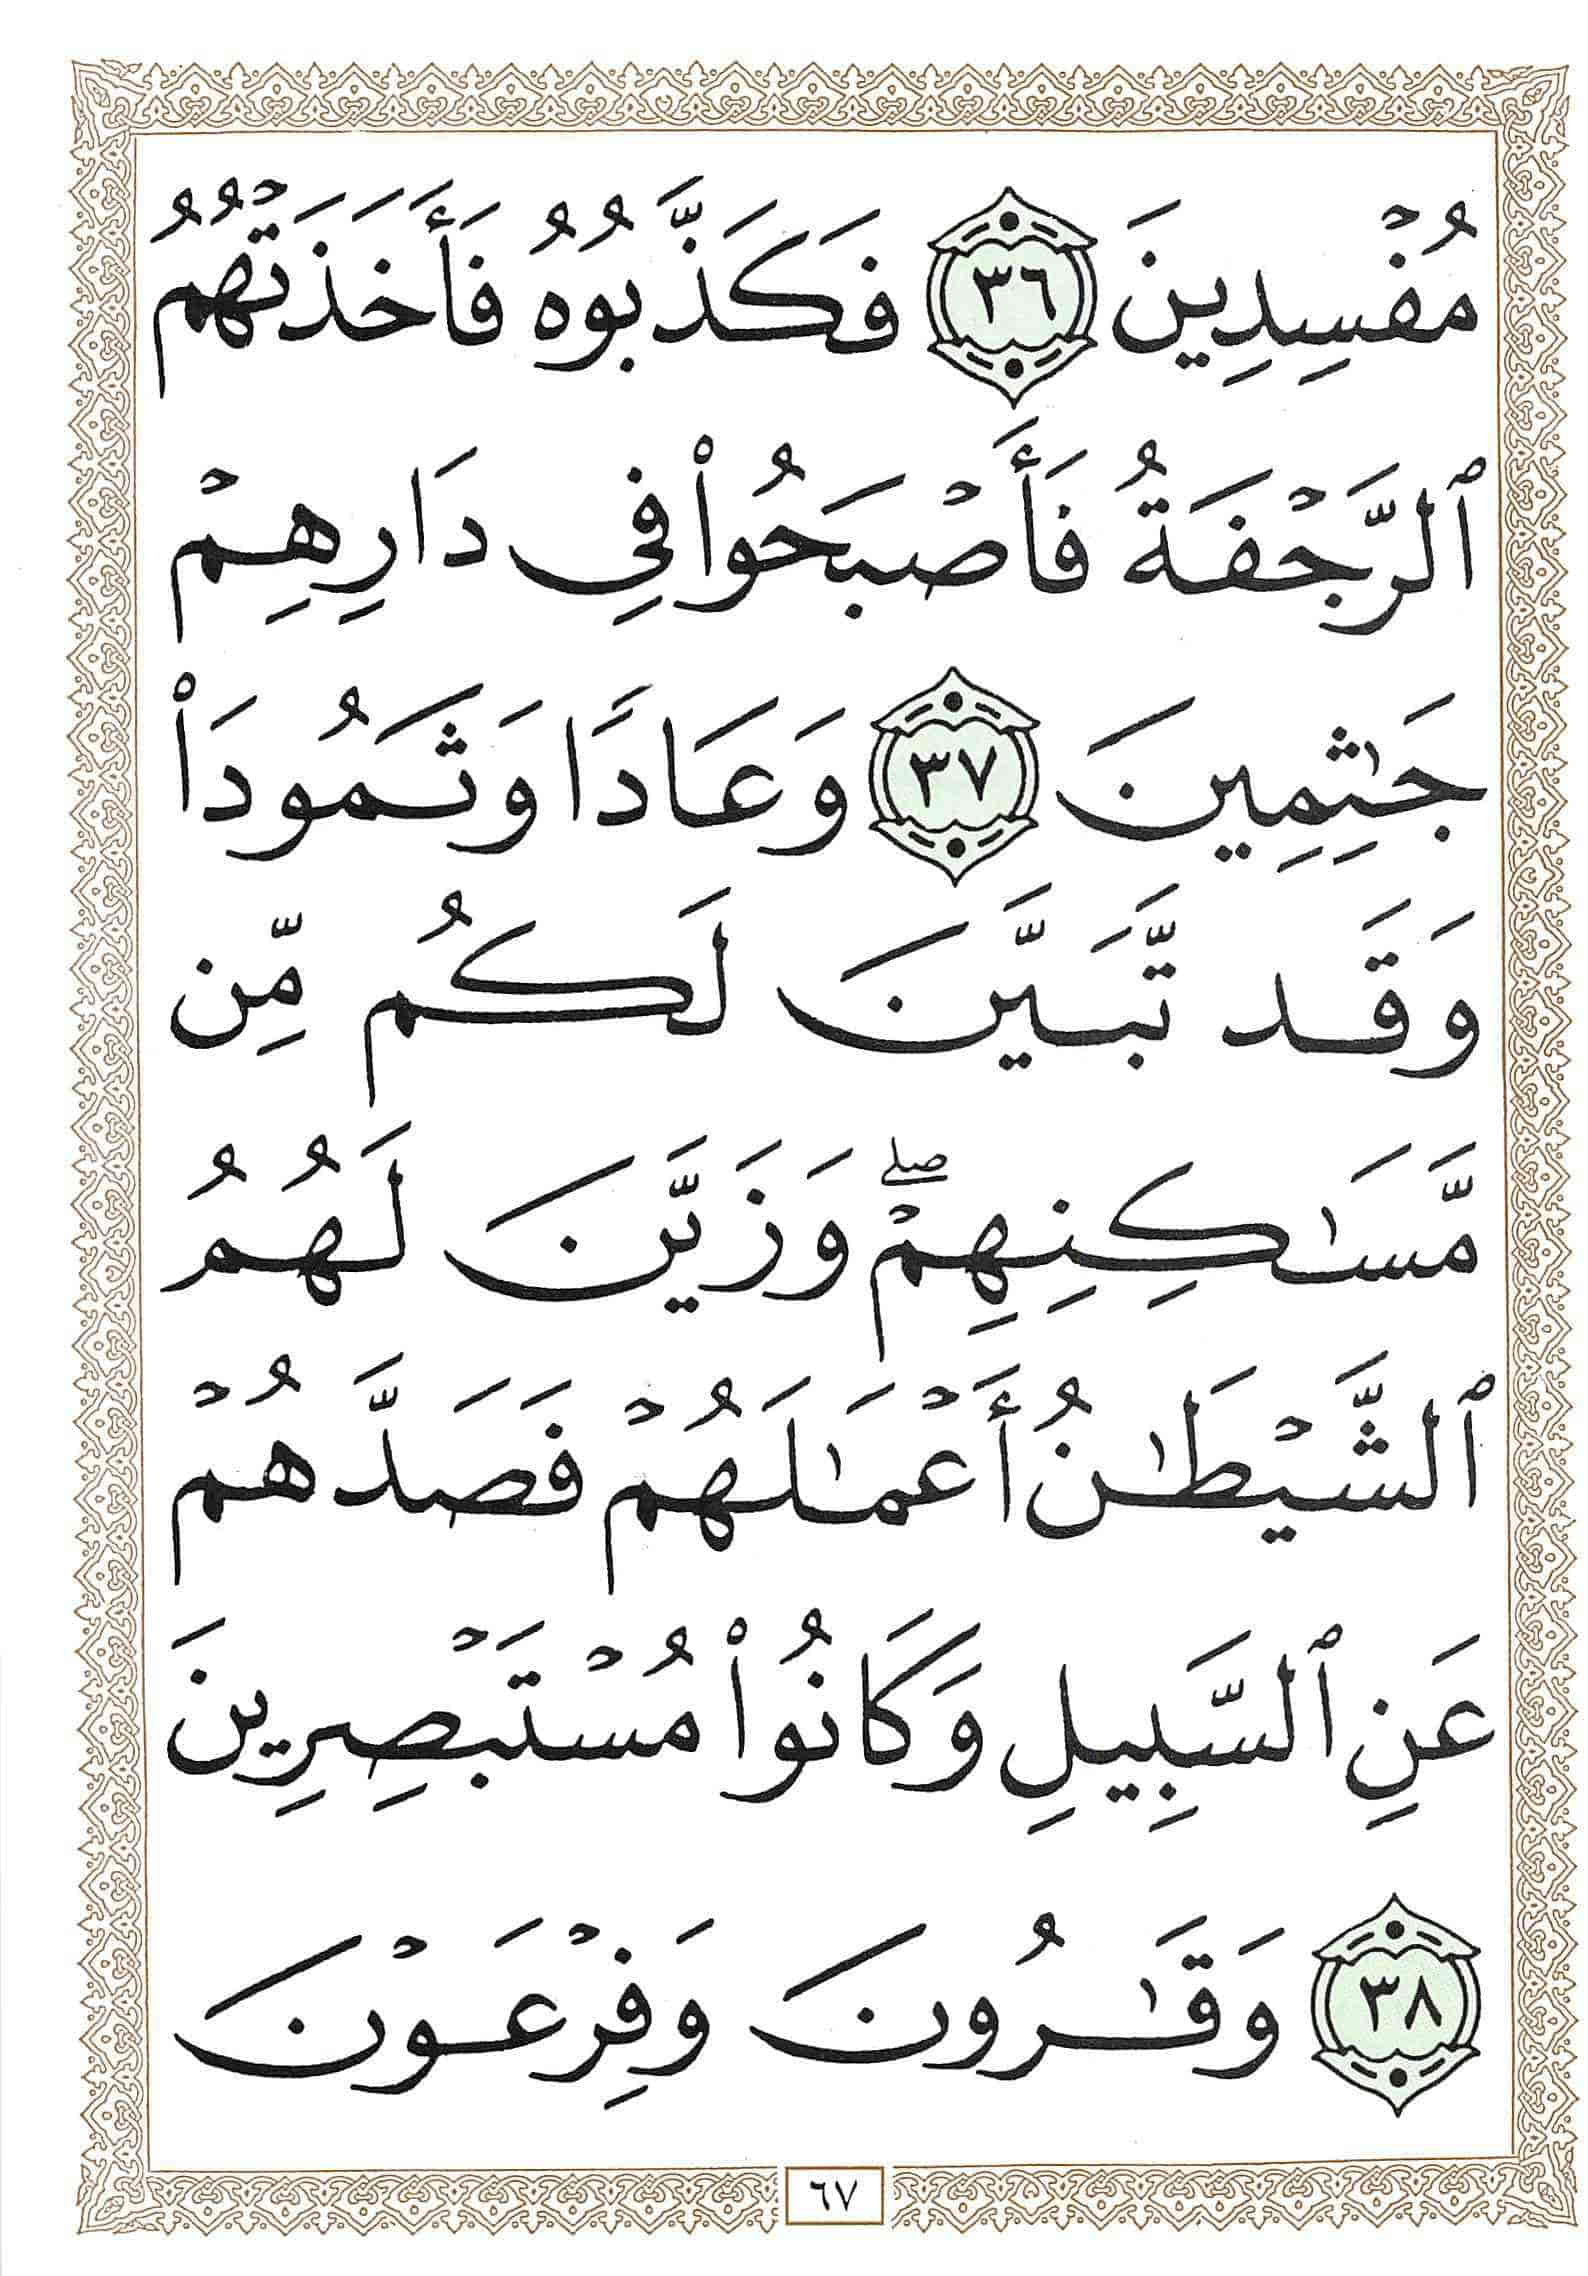 مُفْسِدِينَ ٣٦ فَكَذَّبُوهُ فَأَخَذَتْهُمُ
ٱلرَّجْفَةُ فَأَصْبَحُوا۟ فِي دَارِهِمْ
جَٰثِمِينَ ٣٧ وَعَادًا وَثَمُودَا۟
وَقَد تَّبَيَّنَ لَكُم مِّن
مَّسَٰكِنِهِمْۖ وَزَيَّنَ لَهُمُ
ٱلشَّيْطَٰنُ أَعْمَٰلَهُمْ فَصَدَّهُمْ
عَنِ ٱلسَّبِيلِ وَكَانُوا۟ مُسْتَبْصِرِينَ
٣٨ وَقَٰرُونَ وَفِرْعَوْنَ
٦٧